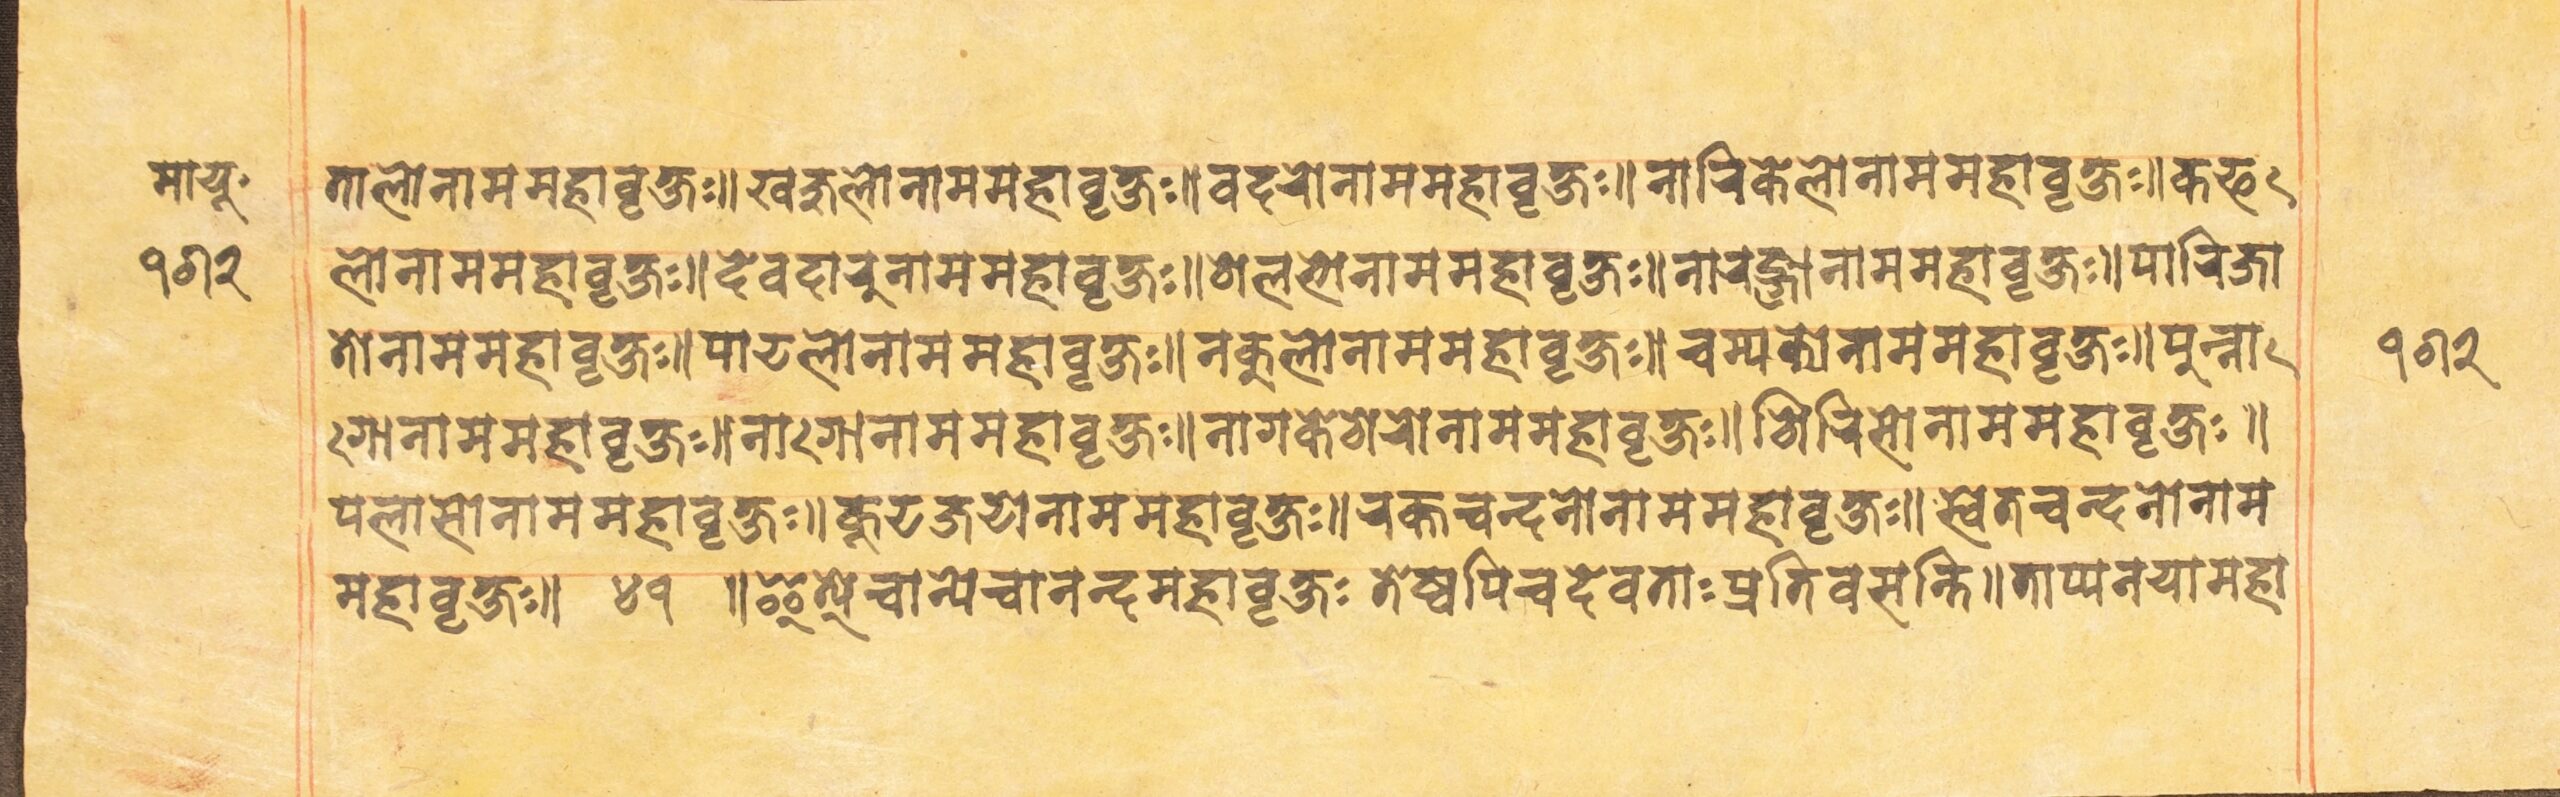 मायूः
१७२
तालोनाममहावृक्षः॥खजुलोनाममहावृक्षः॥वदरोनाममहावृक्षः॥नारिकेलोनाममहावृक्षः॥कछ
लोनाममहावृक्षः॥देवदारुनाममहावृक्षः॥नारङ्गोनाममहावृक्षः॥पारिजा
तोनाममहावृक्षः॥पाटलोनाममहावृक्षः॥नकुलोनाममहावृक्षः॥चम्पकोनाममहावृक्षः॥पुन्ना
गोनाममहावृक्षः॥नागोनाममहावृक्षः॥नागकेशरोनाममहावृक्षः॥शिरिसोनाममहावृक्षः॥
पलासोनाममहावृक्षः॥कूटजयोनाममहावृक्षः॥रक्तचन्दनोनाममहावृक्षः॥स्वेतचन्दनोनाम
महावृक्षः॥ ४१ ॥चान्येचानन्दमहावृक्षः तेष्वपिचदेवताःप्रतिवसन्ति॥ताप्यनयामहा
१७२